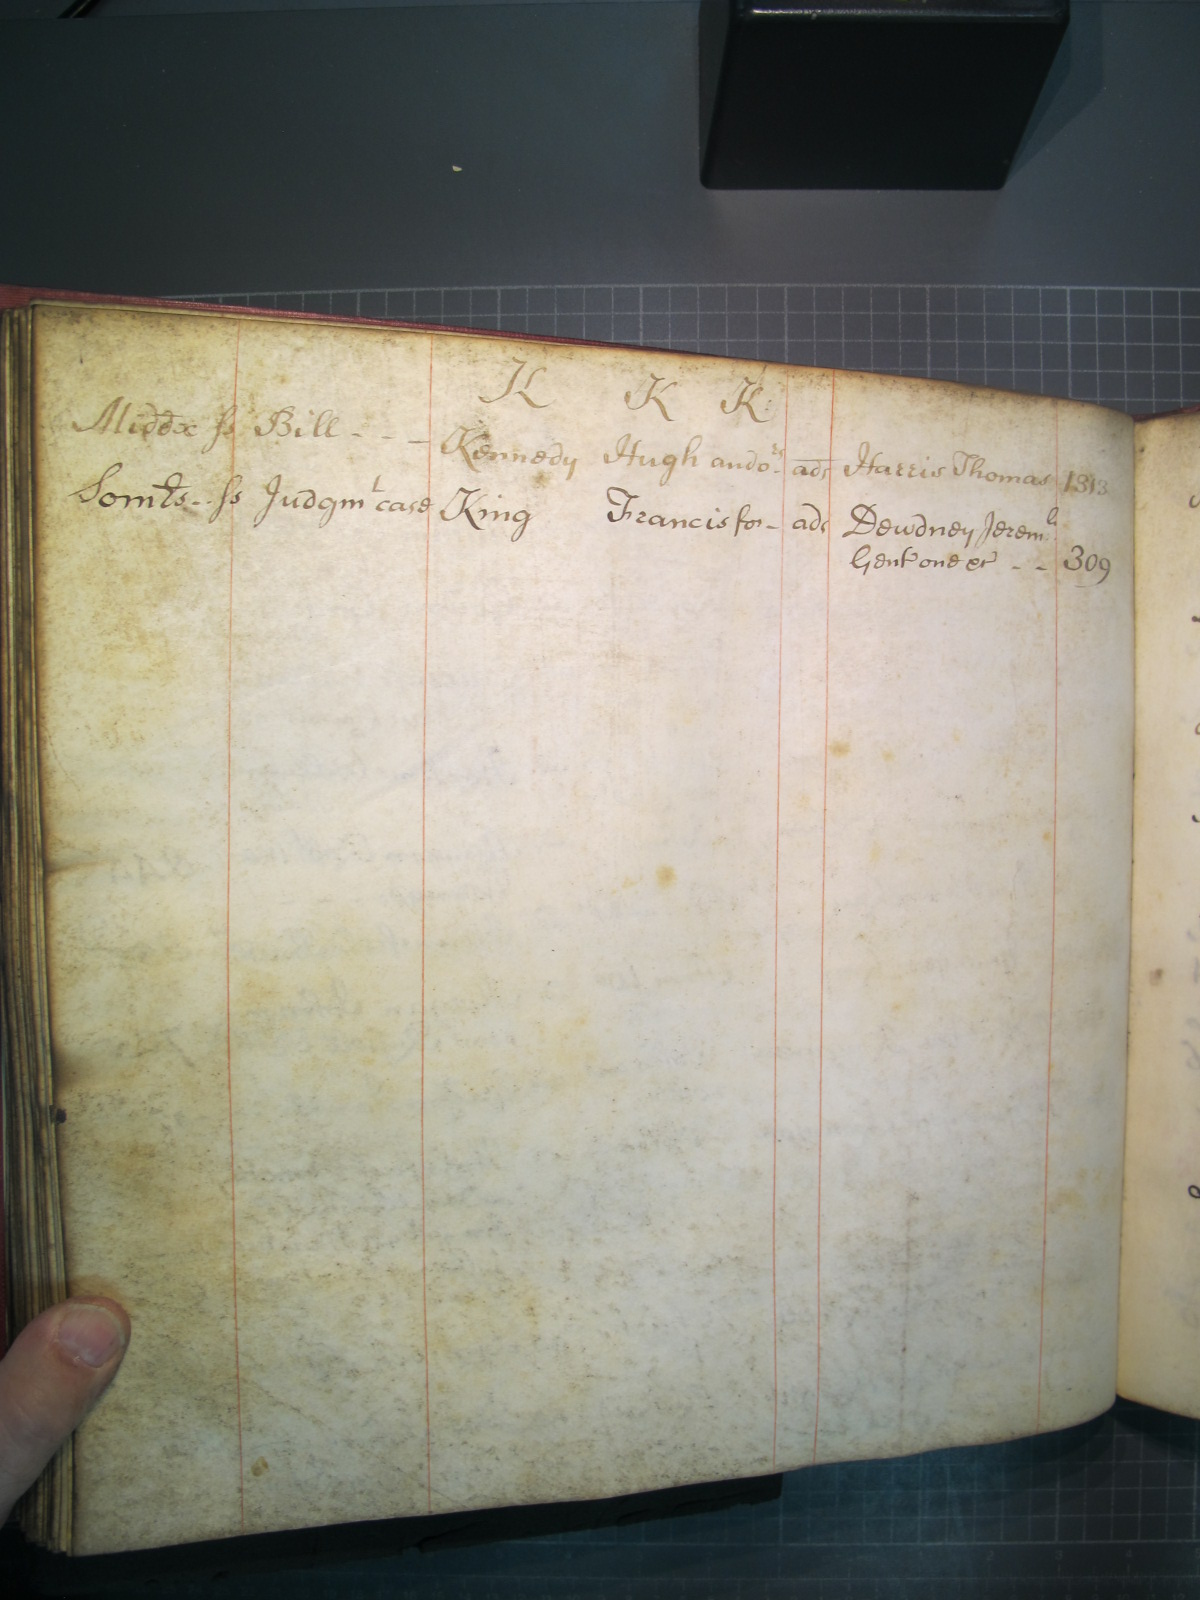 K K K
Middx ss Bill - - - Kennedy Hugh and ors ads Harris Thomas 1313
Somts - ss Judgmt case King Francis for - ads Dewdney Jeremh
Gent one &c - - 309